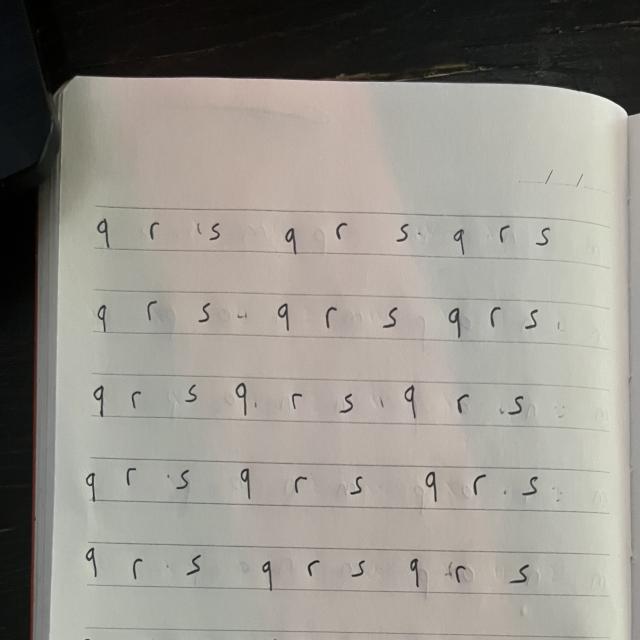 / /
q r s q r s q r s
q r s q r s q r s
q r s q r s q r s
q r s q r s q r s
q r s q r s q r s